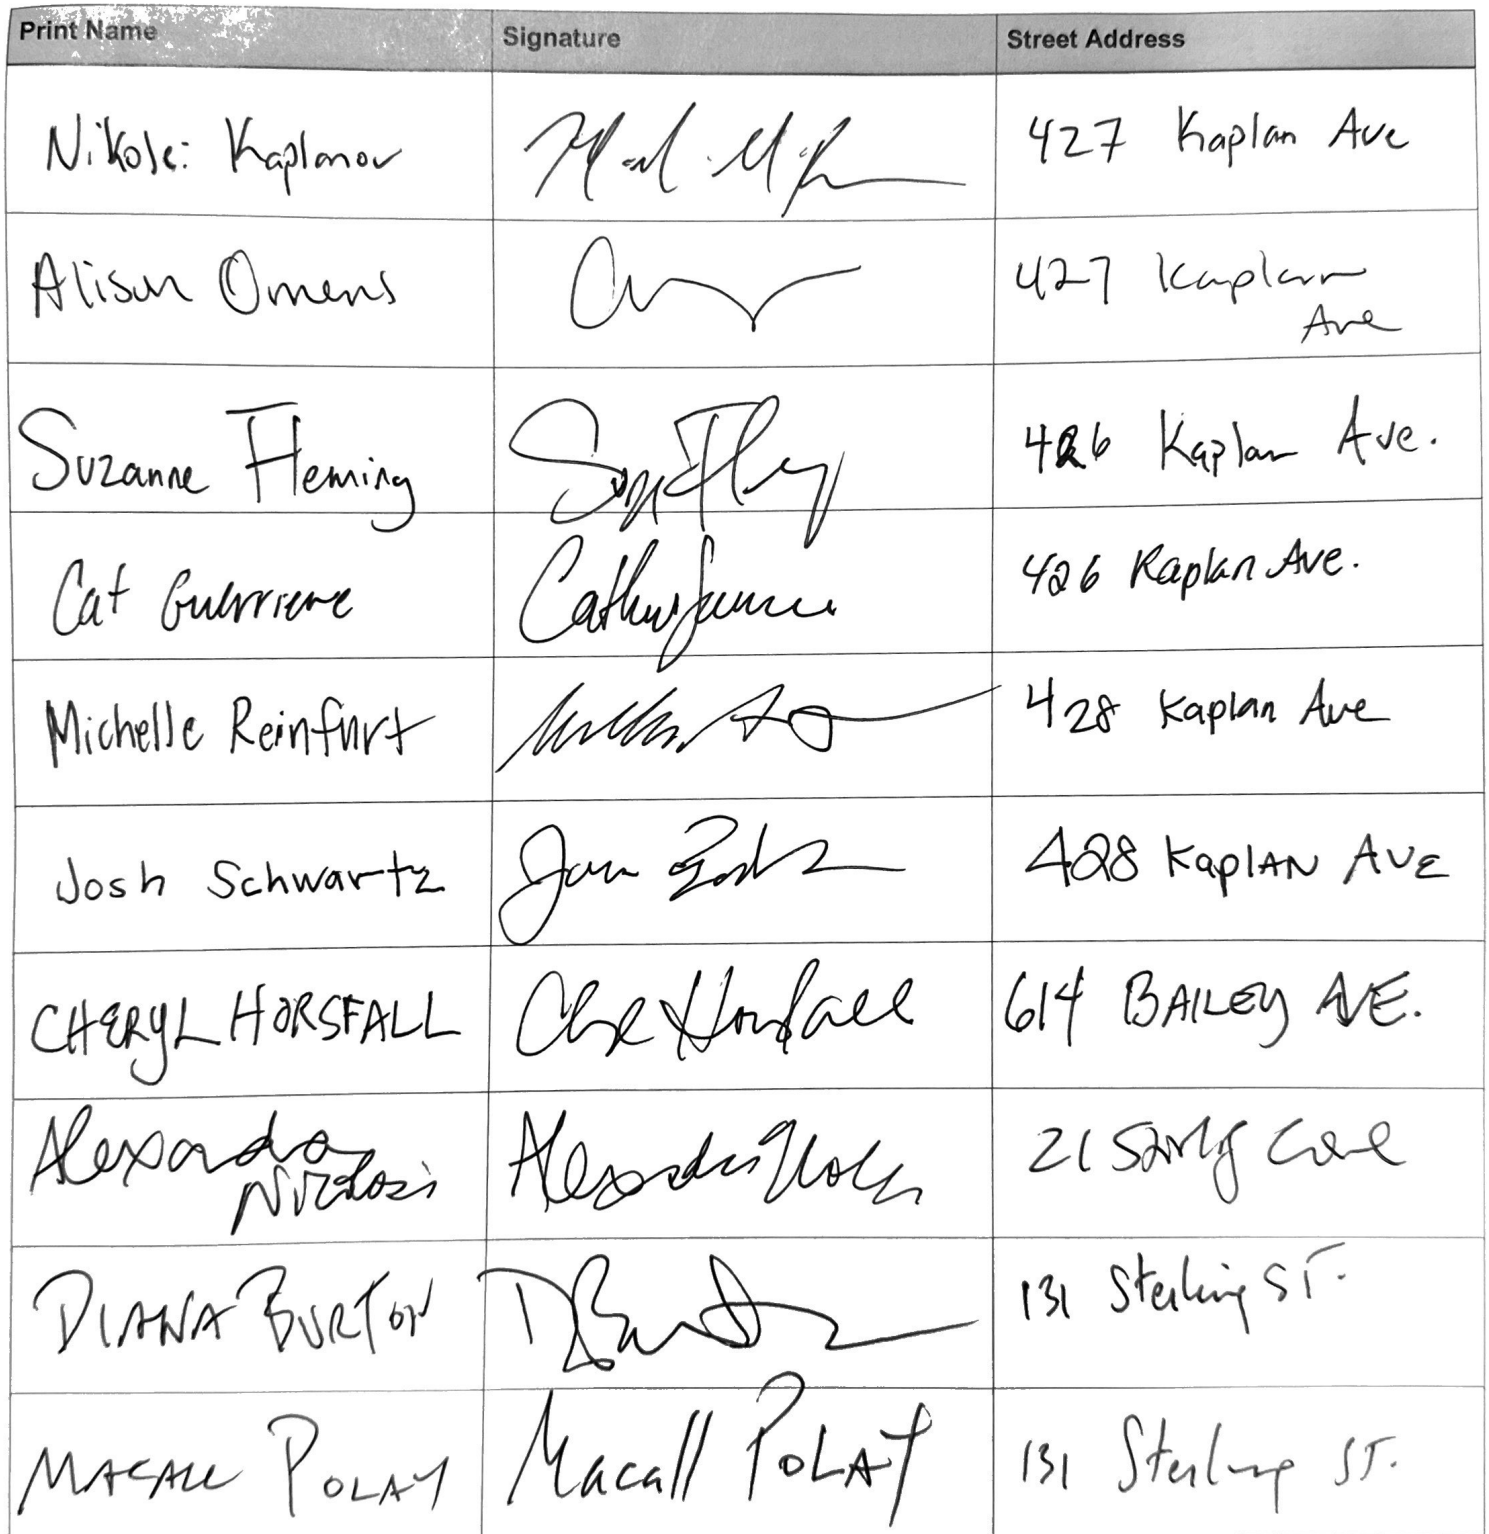 Print Name Signature Street Address
Nikolai Kaplanov 427 Kaplan Ave
Alison Omens 427 Kaplan
Ave
Suzanne Fleming 426 Kaplan Ave.
Cat Guerriere 426 Kaplan Ave.
Michelle Reinfurt 428 Kaplan Ave
Josh Schwartz 428 Kaplan AVE
CHERYL HORSFALL Horsfall 614 BAILEY AVE.
Alexandra 21
Nicolosi
DIANA BURTON 131 Sterling ST.
MACALL POLAY Macall POLAY 131 Sterling ST.